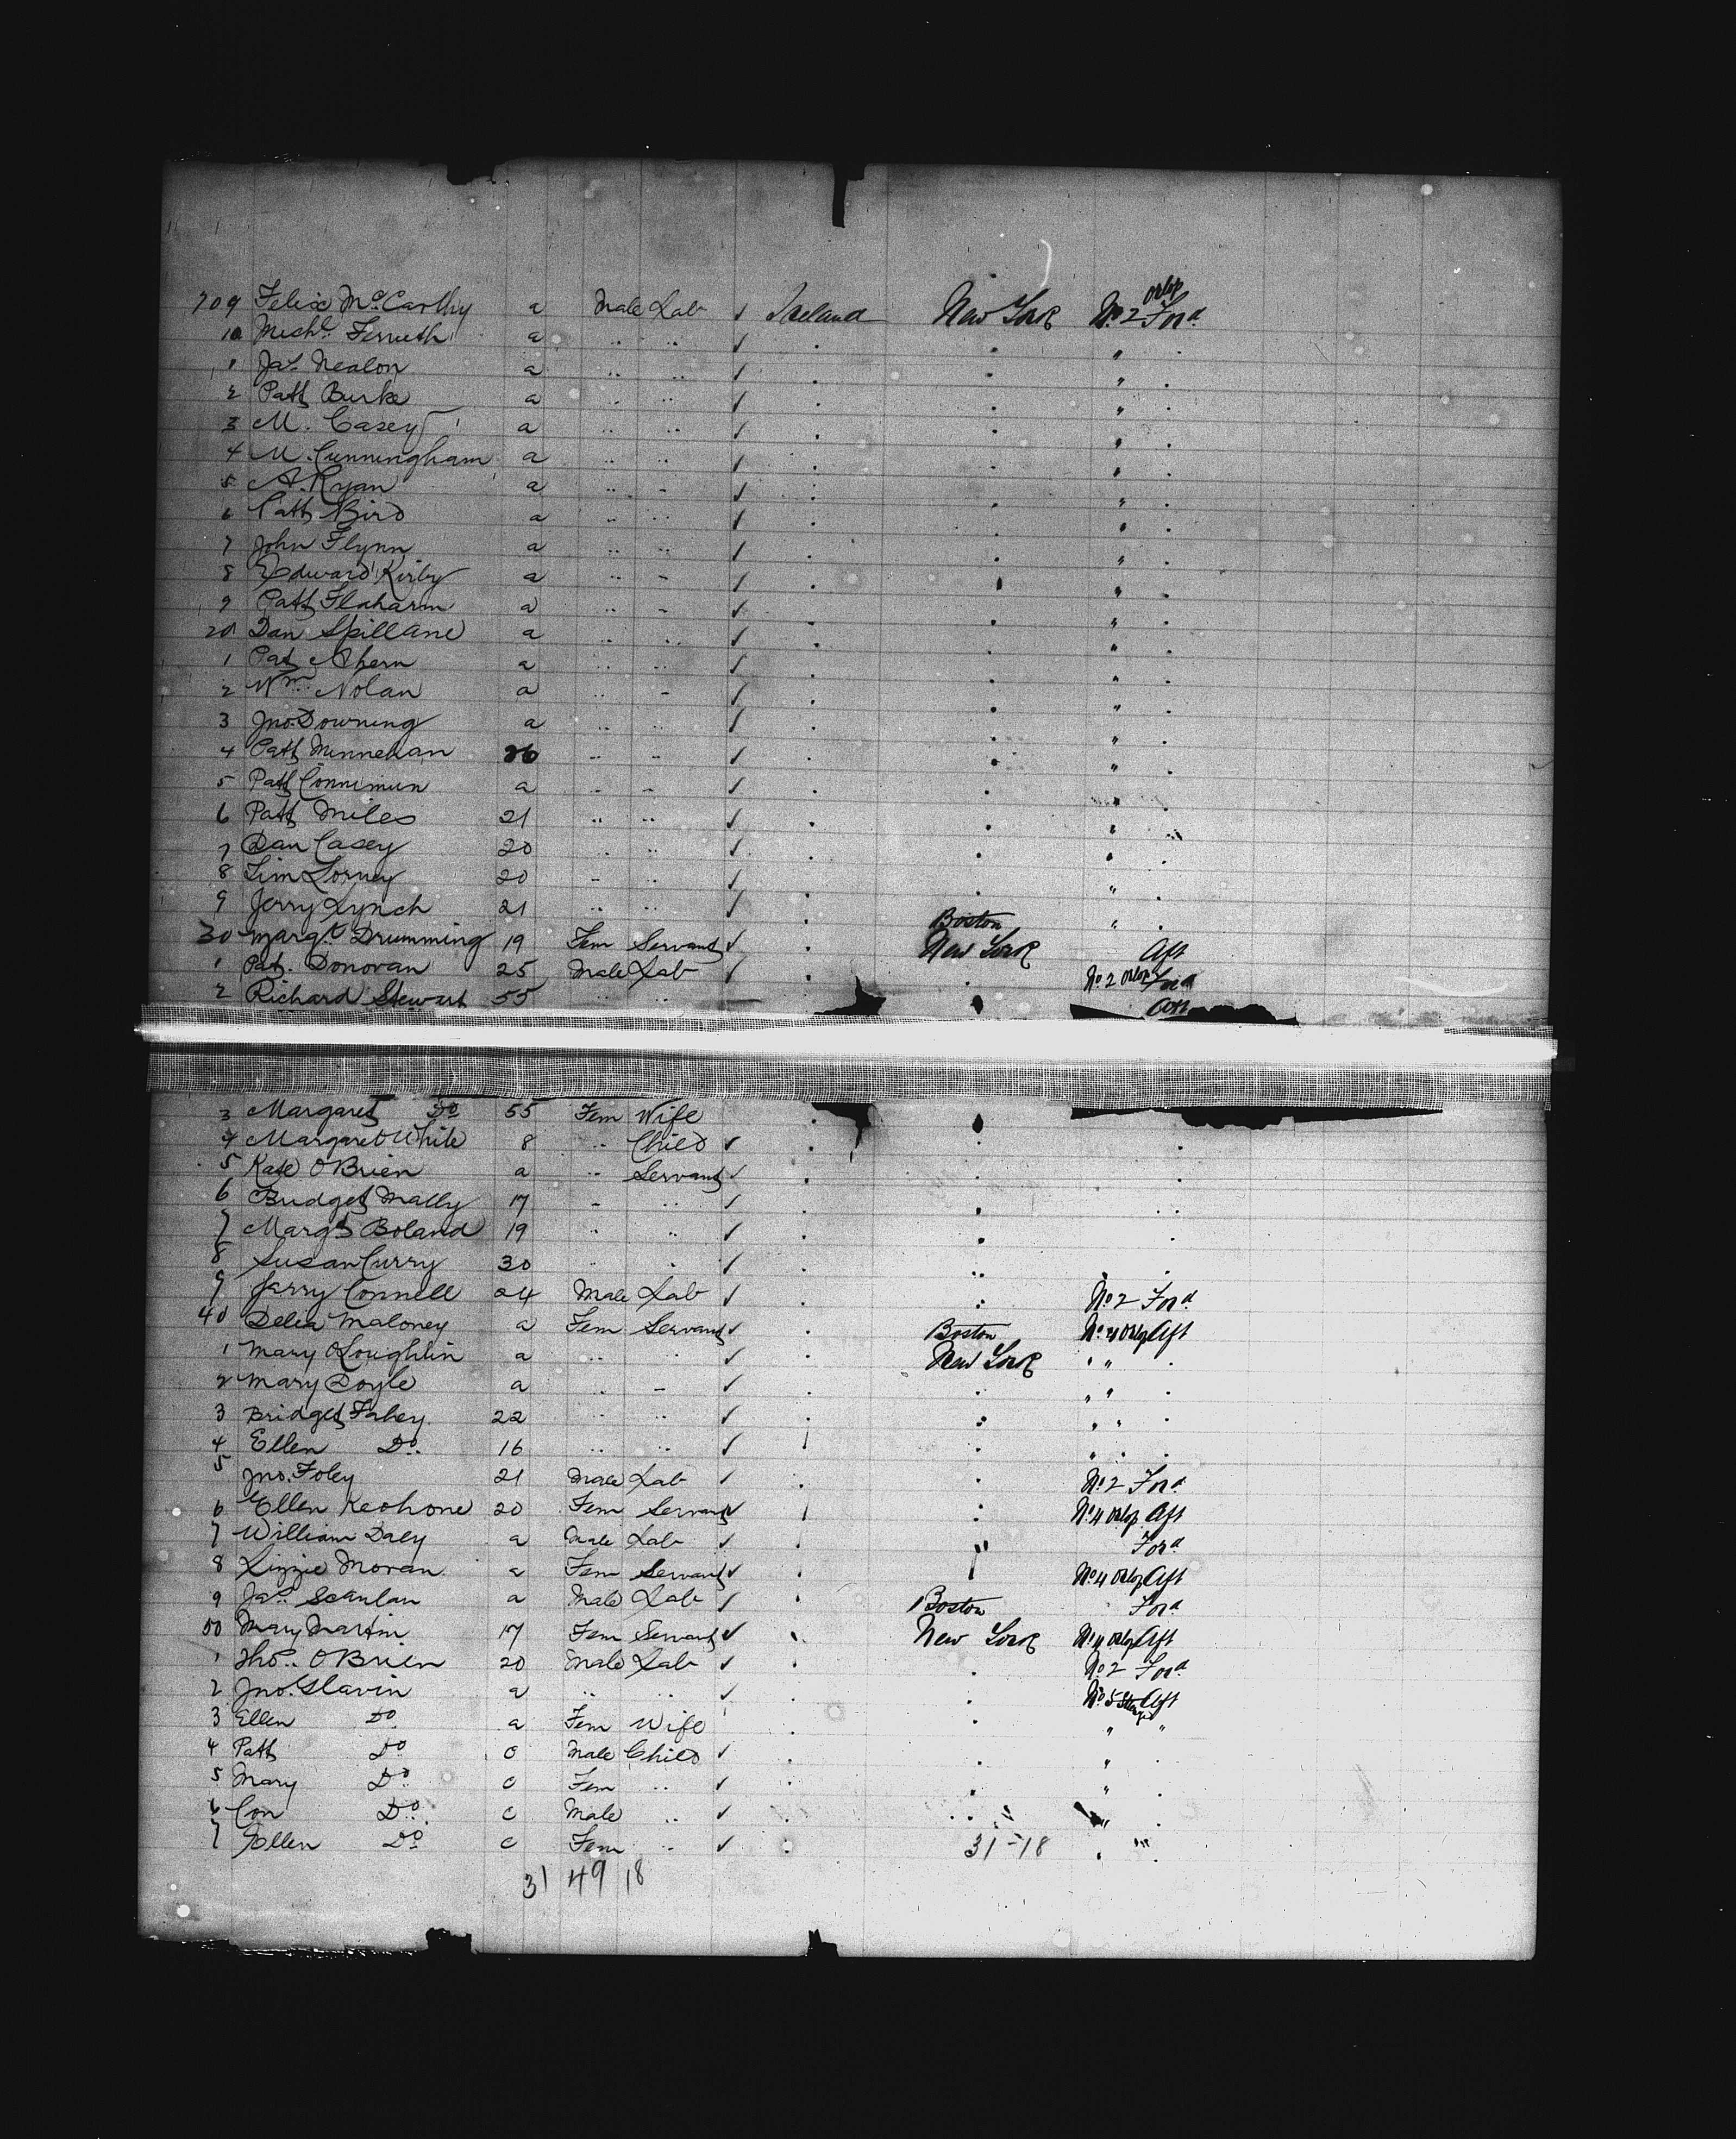 709 Felix McCarthy a Male Lab ✓ Ireland New York No 2 Orlop Ford
10 Michl a " " ✓ . . " .
1 Jas Nealon a " " ✓ . . " .
2 Patk Burke a " " ✓ . . " .
3 M. Casey a " " ✓ . . " .
4 M. Cunningham a " " ✓ . . " .
5 A. Ryan a " " ✓ . . " .
6 Patk Bird a " " ✓ . . " .
7 John Flynn a " " ✓ . . " .
8 Edward Kirby a " " ✓ . . " .
9 Patk a " " ✓ . . " .
20 Dan Spillane a " " ✓ . . " .
1 Pat Ahern a " " ✓ . . " .
2 Wm Nolan a " " ✓ . . " .
3 Jno Downing a " " ✓ . . " .
4 Patk Minnehan 26 " " ✓ . . " .
5 Patk a " " ✓ . . " .
6 Patk Miles 21 " " ✓ . . " .
7 Dan Casey 20 " " ✓ . . " .
8 Tim 20 " " ✓ . . " .
9 Jerry Lynch 21 " " ✓ . Boston " .
30 Margt Drumming 19 Fem Servant ✓ . New York Aft
1 Pat. Donovan 25 Male Lab ✓ . . No 2 Orlop Ford
2 Richard Stewart 55 " " . Aft
3 Margaret Do 55 Fem Wife . .
4 Margaret White 8 " Child ✓ . . .
5 Kate O'Brien a " Servant ✓ . . .
6 Bridget Mally 17 " " ✓ . . . .
7 Margt Boland 19 " " ✓ . . .
8 Susan Curry 30 " " ✓ . . .
9 Jerry Connell 24 Male Lab ✓ . . No 2 Ford
40 Delia Maloney a Fem Servant ✓ . Boston No 4 Orlop Aft
1 Mary OLoughlin a " " ✓ . New York " " .
2 Mary Doyle a " " ✓ . . " " .
3 Bridget Fahey 22 " " ✓ . . " " .
4 Ellen Do 16 " " ✓ . . " " .
5 Jno. Foley 21 Male Lab ✓ . . No 2 Ford
6 Ellen Keohone 20 Fem Servant ✓ . . No 4 Orlop Aft
7 William Daly a Male Lab ✓ . " Ford
8 Lizzie Moran a Fem Servant ✓ . No 4 Orlop Aft
9 Jas Scanlan a Male Lab ✓ . Boston Ford
50 Mary Martin 17 Fem Servant ✓ . New York No 4 Orlop Aft
1 Tho. O'Brien 20 Male Lab ✓ . . No 2 Ford
2 Jno. Slavin a " " ✓ . . No 5 Steerage Aft
3 Ellen Do a Fem Wife . . " "
4 Patk Do c Male Child ✓ . . " .
5 Mary Do c Fem " ✓ . . " .
6 Con Do c Male " ✓ . . " .
7 Ellen Do c Fem " ✓ . 31-18 " "
31 49 18